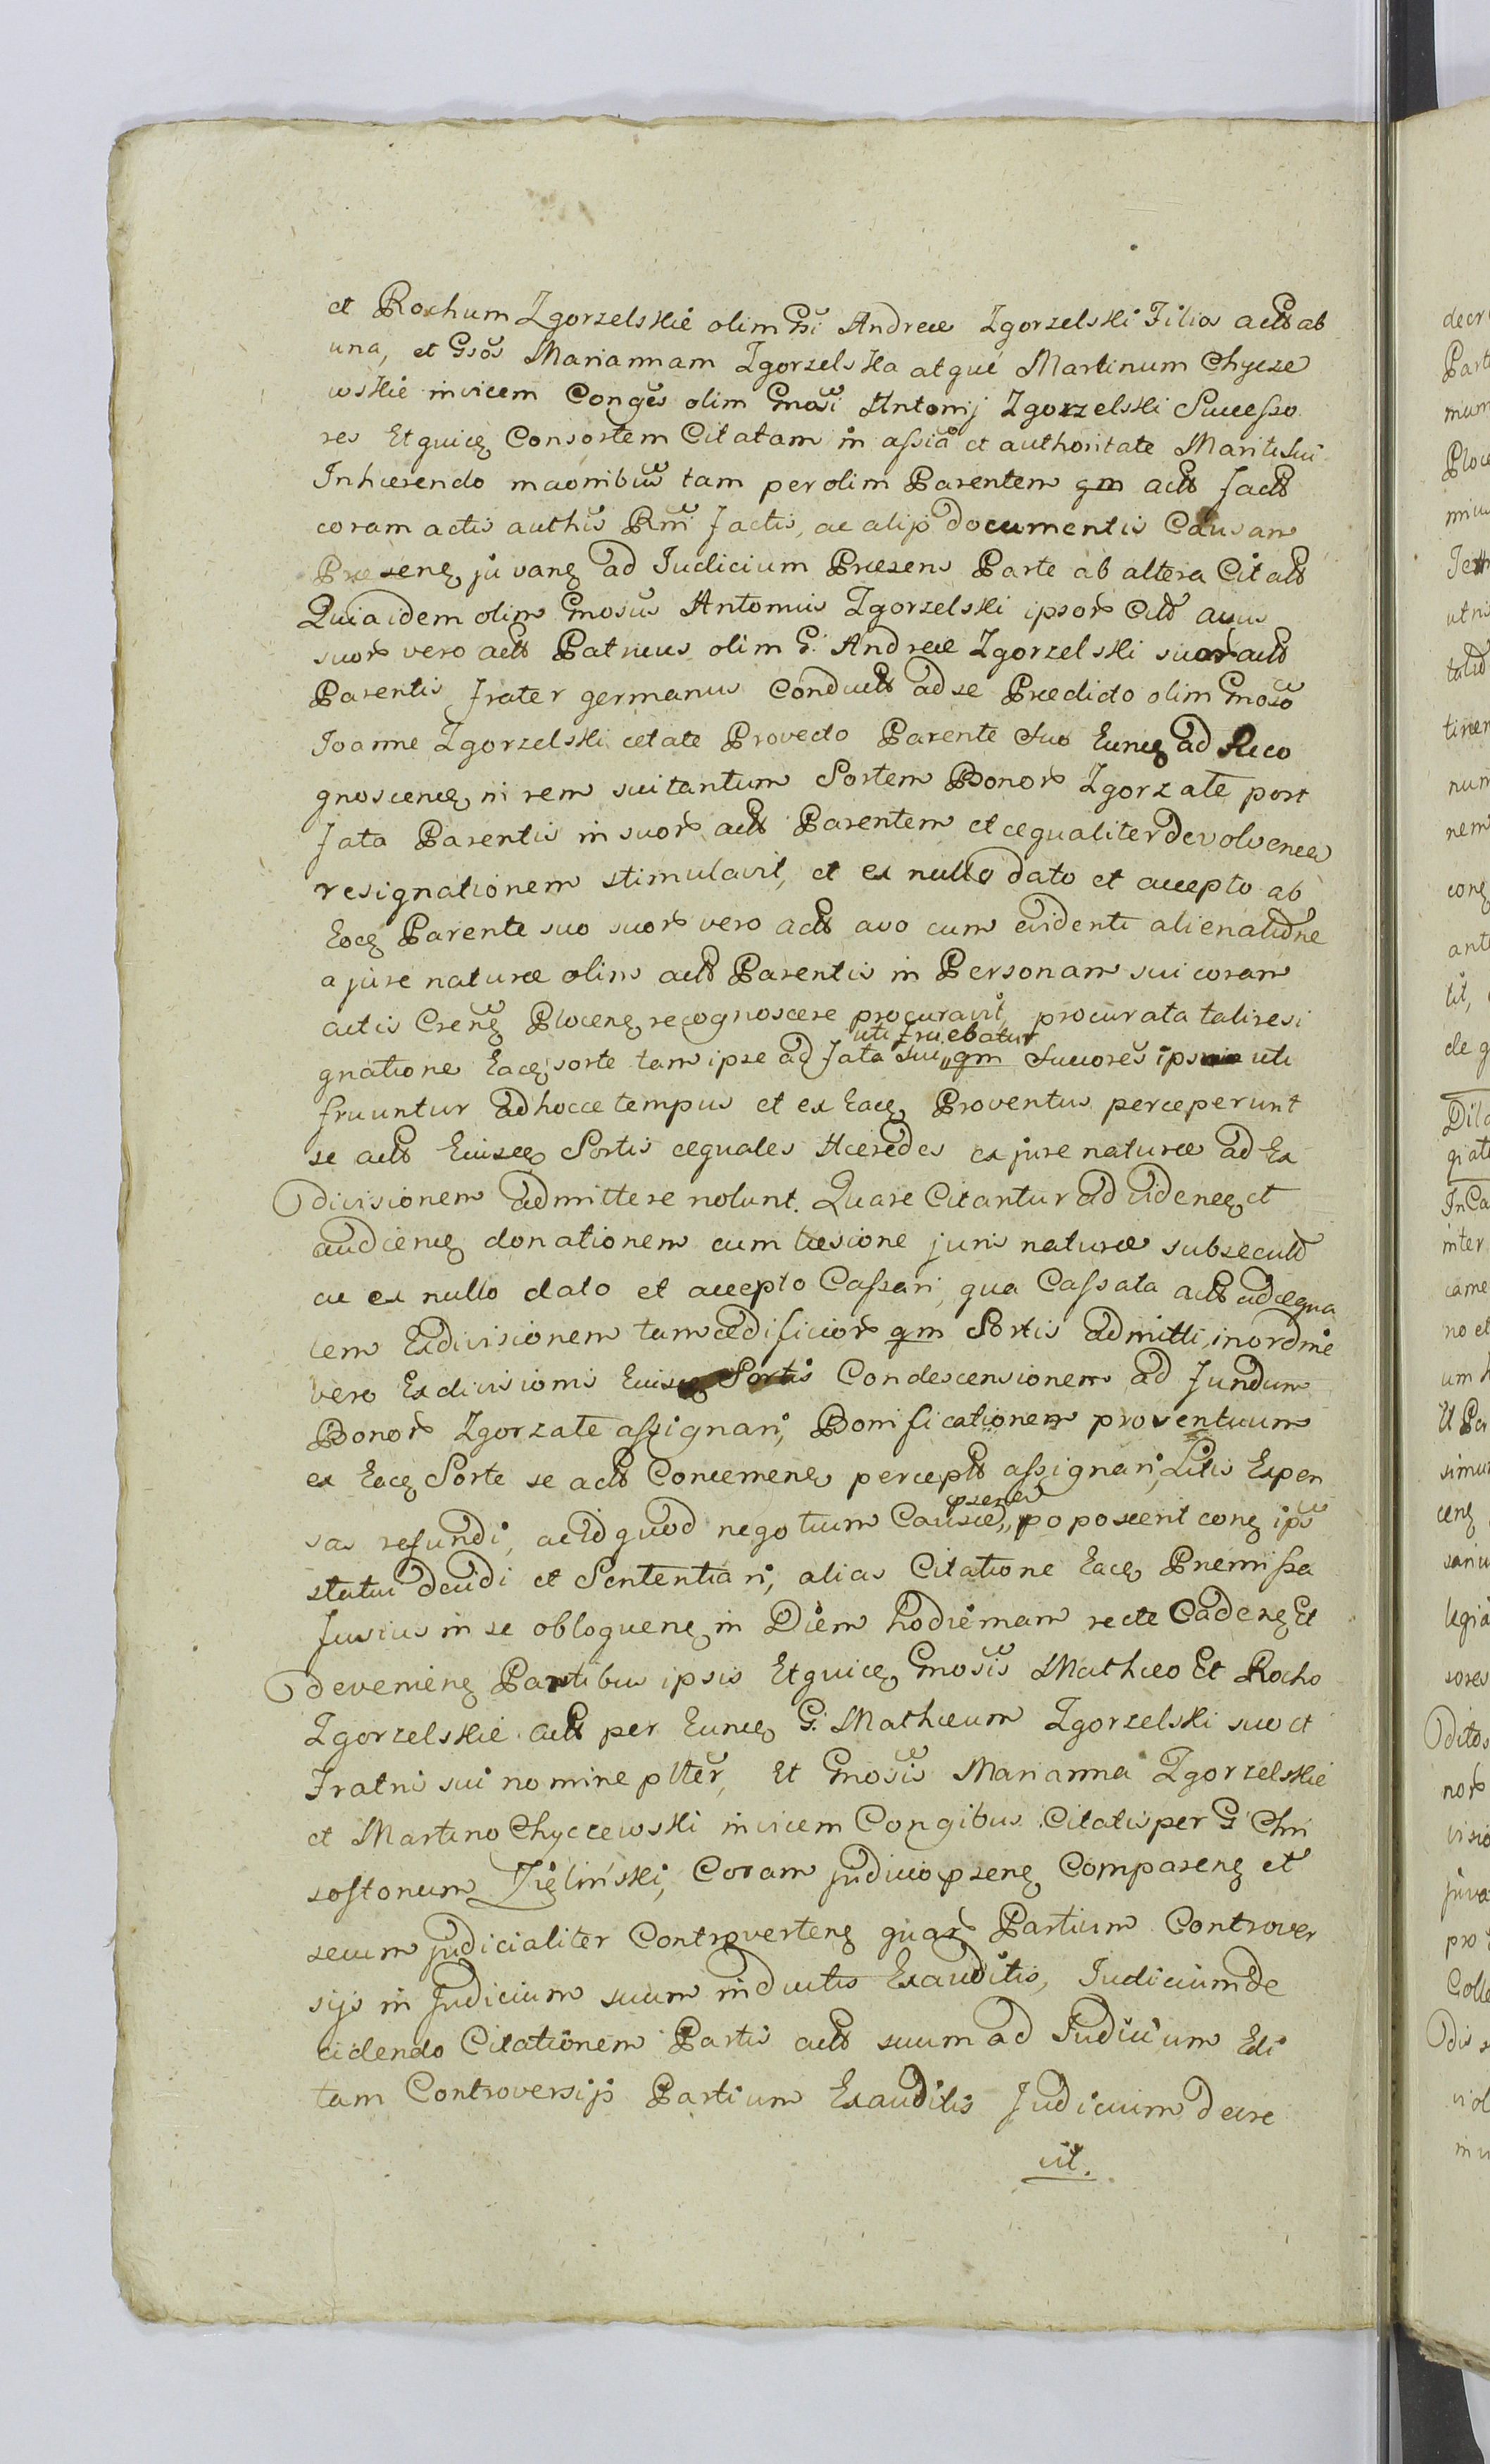 et Rochum Zgorzelskie olim Gsi Andreæ Zgorzelski Filios actb ab
una, et Gsos Mariannam Zgorzelska atque Martinum Chycze
wskie invicem Conges olim Gnosi Antonij Zgorzelski Successo
res Etquicq Consortem Citatam in assia et authoritate Mariti sui
Inhærendo maonibus tam per olim Parentem qm actb factb
coram actis authis Rni factis, ac alijs documentis Causam
Præsenq juvanq ad Iudicium Præsens Parte ab altera Citatb
Quia idem olim Gnosus Antonius Zgorzelski ipsor Citb avus
suor vero actb Patruus olim G. Andreæ Zgorzelski suor actb
Parentis frater germanus Conductb ad se Prædicto olim Gnoso
Joanne Zgorzelski ætate Provecto Parente Suo Euncq ad Reco
gnoscencq in rem sui tantum Sortem Bonor Zgorzate post
fata Parentis in suor actb Parentem et æqualiter devolvencq
resignationem stimulavit, et ex nullo dato et accepto ab
Eocq Parente suo suor vero actb avo cum evidenti alienatione
a jure naturæ olim actb Parentis in Personam sui coram
actis Crenq Plocenq recognoscere procuravit, procurata tali resi
uti fruebatur
gnatione Eacq sorte tam ipse ad fata sui,, qm Succores ipsius uti
fruuntur ad hocce tempus et ex Eacq Proventus perceperunt
se actb Euiscq Sortis æquales Hæredes ex jure naturæ ad Ex
divisionem admittere nolunt. Quare Citantur ad videncq et
audiencq donationem cum læsione juris naturæ subsecutb
ac ex nullo dato et accepto Cassari, qua Cassata actb ad æqua
lem Exdivisionem tam ædificior qm Sortis admitti, in ordine
vero Exdivisionis Euiscq Sortis Condescensionem ad fundum
Bonor Zgorzate assignari, Bonificationem proventuum
ex Eacq Sorte se actb Concernenq perceptb assignari, Litis Expen
psenq
sas refundi, ac id quod negotium Causæ,, poposcerit conq ips
statui decidi et Sententiari, alias Citatione Eacq Præmissa
fusius in se obloquenq in Diem hodiernam recte Cadenq Et
devenienq Partibus ipsis Etquicq Gnosis Mathæo Et Rocho
Zgorzelskie actb per Euncq G. Mathæum Zgorzelski suo et
Fratris sui nomine plter, Et Gnosis Marianna Zgorzelskie
et Martino Chyczewski invicem Congibus Citatis per G Chri
sostonum Zieliński, Coram judicio psenq Comparenq et
secum judicialiter Controvertenq quar Partium Controver
sijs in Judicium suum inductis Exauditis, Iudicium de
cidendo Citationem Partis actb suum ad Judicium Edi
tam Controversijs Partium Exauditis Judicium decre
vit.